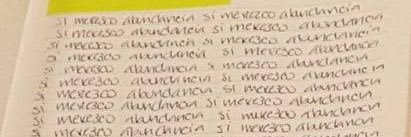 si merezco abundancia si merezco abundancia
si merezco abundancia si merezco abundancia
si merezco abundancia si merezco abundancia
si merezco abundancia si merezco abundancia
si merezco abundancia si merezco abundancia
si merezco abundancia si merezco abundancia
si merezco abundancia si merezco abundancia
si merezco abundancia si merezco abundancia
si merezco abundancia si merezco abundancia
si merezco abundancia si merezco abundancia